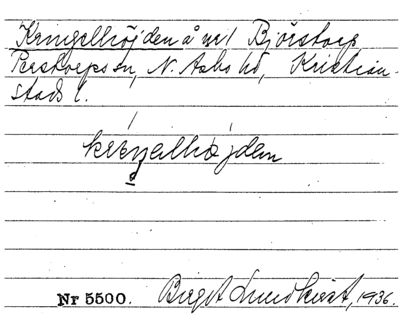 Kringelhöjden å nr 1 Björstorp
Perstorps sn, N. Åsbo hd, Kristian-
stads l.
kriŋəlhöjdən
Nr 5500. Birgit Lundkvist, 1936.